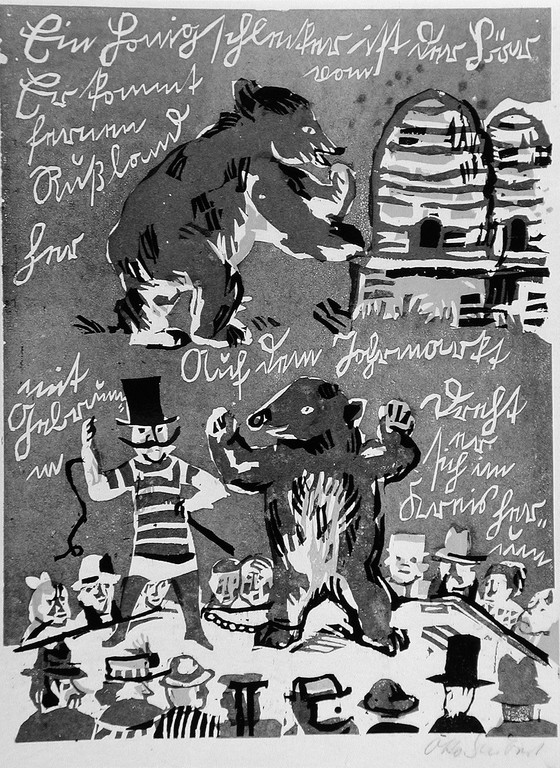 Ein Honigschlecker ist der Bär
Er kommt vom
fernen
Rußland
her
Auf dem Jahrmarkt
mit
Gebrumm
Dreht
er
sich im
Kreis her-
um